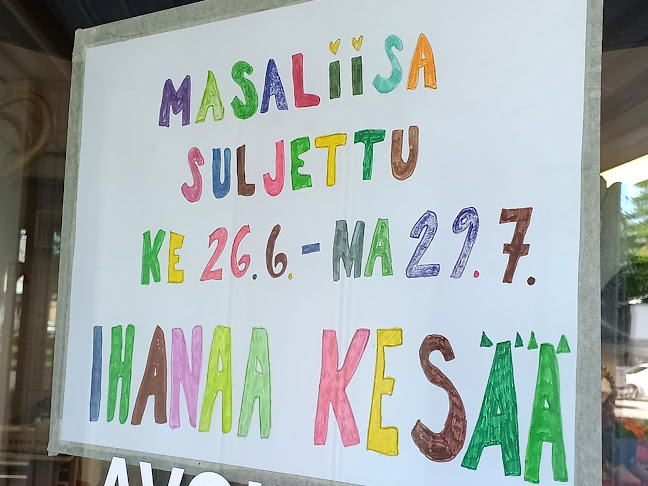 MASALiiSA
SULJETTU
KE 26.6.-MA 29.7.
IHANAA KESÄÄ